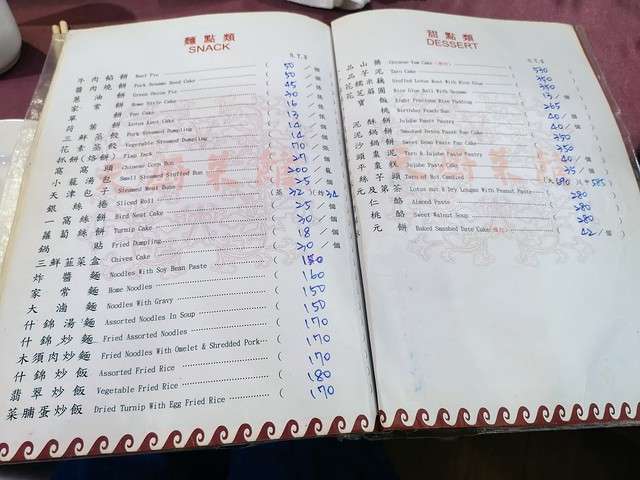 麵點類
SNACK
N.T.$
牛肉餡餅 Beef Pie ( 50 /個
醬肉燒餅 Pork Sesame Seed Cake ( 50 /個
蔥油餅 Green Onion Pie ( /個
家常餅 Home Style Cake ( 30 /個
單餅 Pan Cake ( 16 /個
荷葉餅 Lotus Leaf Cake ( 13 /個
三鮮蒸餃 Pork Steamed Dumpling ( 14 /個
花素蒸餃 Vegetable Steamed Dumpling ( 14 /個
抓餅(烙餅) Flap Jack ( 70 /個
窩窩頭 Chinese Corn Bun ( 27 /個
小籠湯包 Small Steamed Stuffed Bun ( 200
天津包子 Steamed Meat Buns ( 35 /個
銀絲捲 Sliced Roll (蒸 32 )(炸 34
一窩絲餅 Bird Nest Cake ( 25 /個
蘿蔔絲餅 Turnip Cake ( 30 /個
鍋貼 Fried Dumpling ( 18 /個
三鮮韮菜盒 Chives Cake ( 30 /個
炸醬麵 Noodles With Soy Bean Paste ( 150
家常麵 Home Noodles ( 160
大滷麵 Noodles With Gravy ( 150
什錦湯麵 Assorted Noodles In Soup ( 150
什錦炒麵 Fried Assorted Noodles ( 170
木須肉炒麵 Fried Noodles With Omelet & Shredded Pork… ( 170
什錦炒飯 Assorted Fried Rice ( 170
翡翠炒飯 Vegetable Fried Rice ( 180
菜脯蛋炒飯 Dried Turnip With Egg Fried Rice ( 170
甜點類
DESSERT
N.T.$
Chinese Yam Cake ( 530
Taro Cake ( 350
Stuffed Lotus Root With Rice Glue ( 350
Rice Glue Ball With Sesame ( 13 /個
八寶飯 Eight Precious Rice Pudding ( 350
壽桃 Birthday Peach Bun ( 40 /個
棗泥酥餅 Jujube Paste Pastry ( 40 /個
棗泥鍋餅 Smashed Dates Paste Pan Cake ( 350
豆沙鍋餅 Sweet Bean Paste Pan Cake ( 350
Taro & Jujube Paste Pastry ( 40 /個
Jujube Paste Cake ( 35 /個
拔絲芋頭 Taro of Hot Candied (大 690 )(中 585 )
Lotus nut & Dry Longan With Peanut Paste ( 280
杏仁酪 Almond Paste ( 280
核桃酪 Sweet Walnut Soup ( 280
狀元餅 Baked Smashed Date Cake ( 42 /個